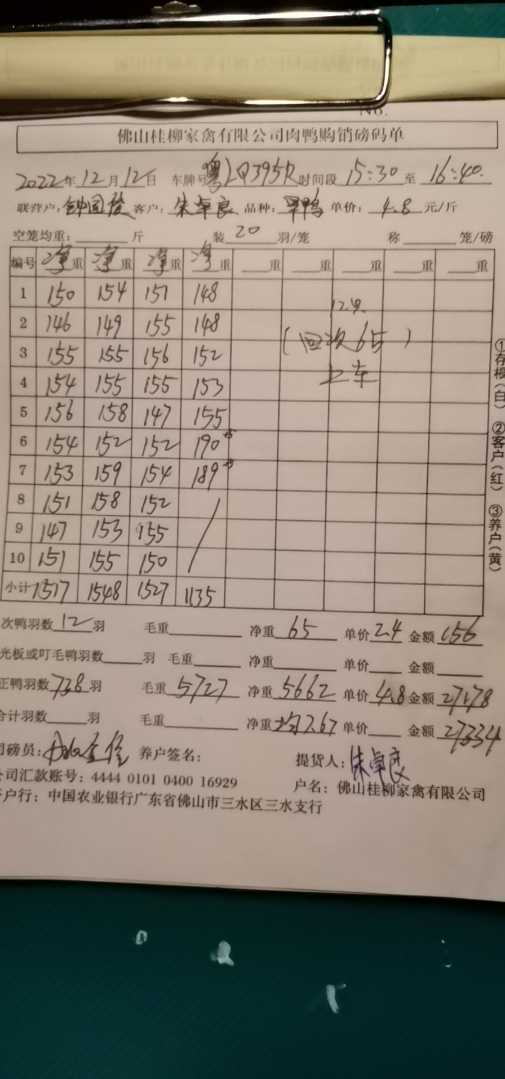 No.
佛山桂柳家禽有限公司肉鸭购销磅码单
2022年12月12日 车牌号粤LQ395R时间段15:30至16:40
联营户: 客户:朱卓良 品种:鸭 单价:4.8元/斤
空笼均重:斤 装20羽/笼 称笼/磅
编号 净重 净重 净重 净重 重 重 重 重 重
1 150 154 151 148
12只
2 146 149 155 148
(回次65)
3 155 155 156 152
上车
4 154 155 155 153
5 156 158 147 155
6 154 152 152 190
7 153 159 154 189
8 151 158 152
9 147 153 155
10 151 155 150
小计 1517 1548 1527 1135
①存根(白) ②客户(红) ③养户(黄)
次鸭羽数12羽 毛重 净重65 单价2.4 金额156
光板或叮毛鸭羽数羽 毛重 净重 单价 金额
正鸭羽数738羽 毛重5727 净重5662 单价4.8 金额27178
合计羽数羽 毛重 净重 7.67 单价 金额27334
司磅员: 养户签名: 提货人:朱卓良
公司汇款账号: 4444 0101 0400 16929 户名: 佛山桂柳家禽有限公司
户行: 中国农业银行广东省佛山市三水区三水支行